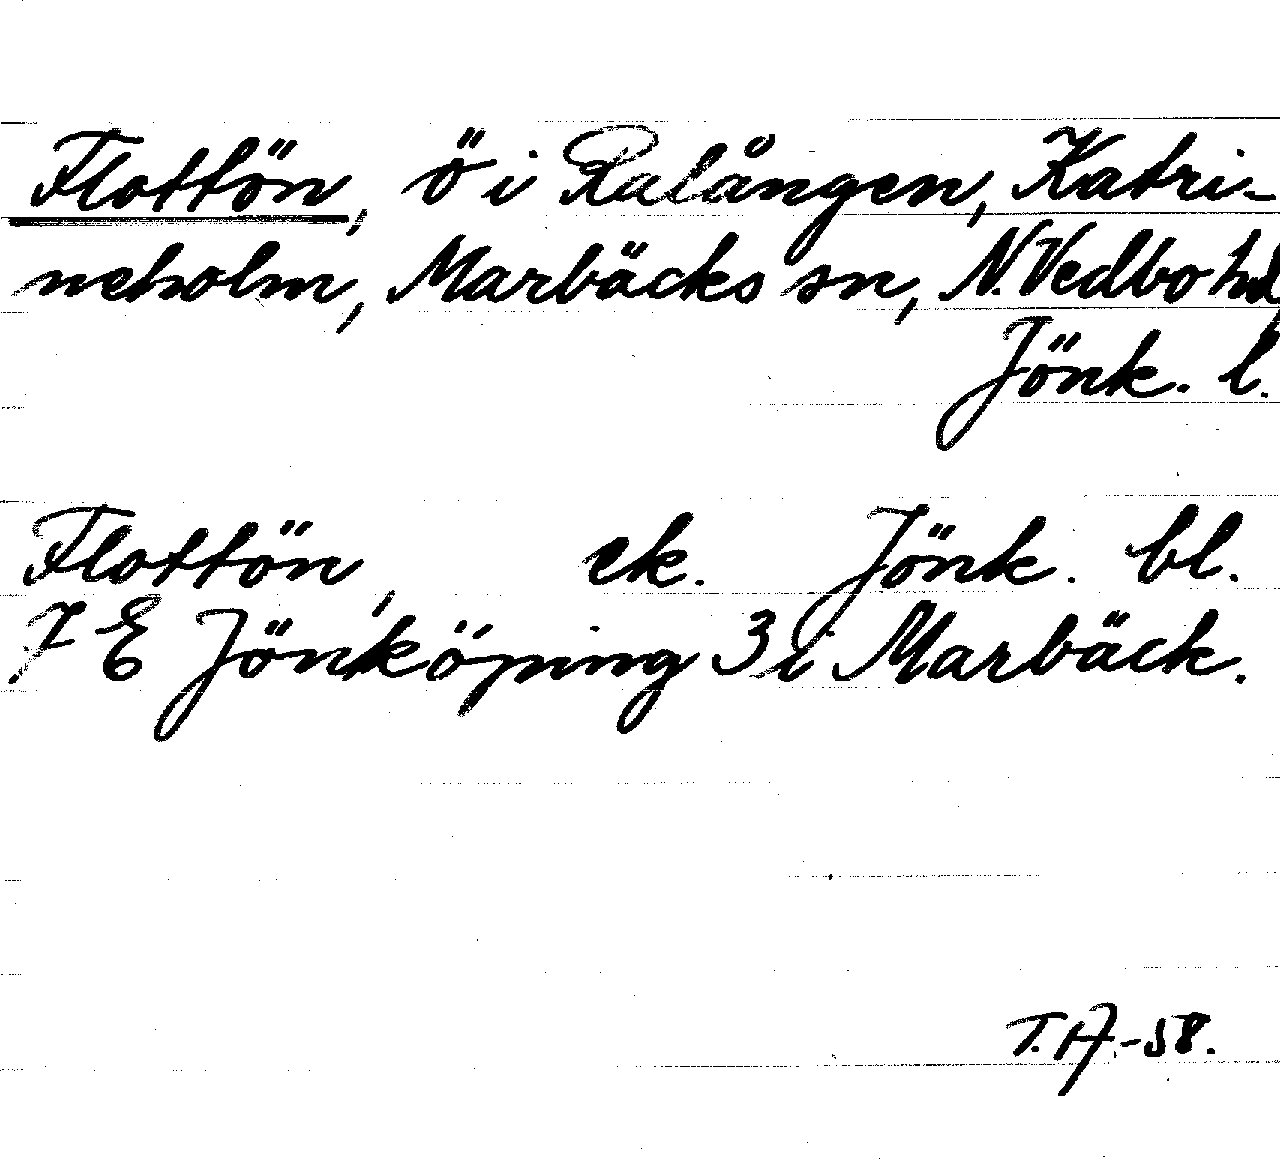 Flottön, ö i Ralången, Katri-
neholm, Marbäcks sn, N. Vedbo hd,
Jönk. l.
Flottön, ek. Jönk. bl.
7 E Jönköping 3 i Marbäck.
T. A. -58.